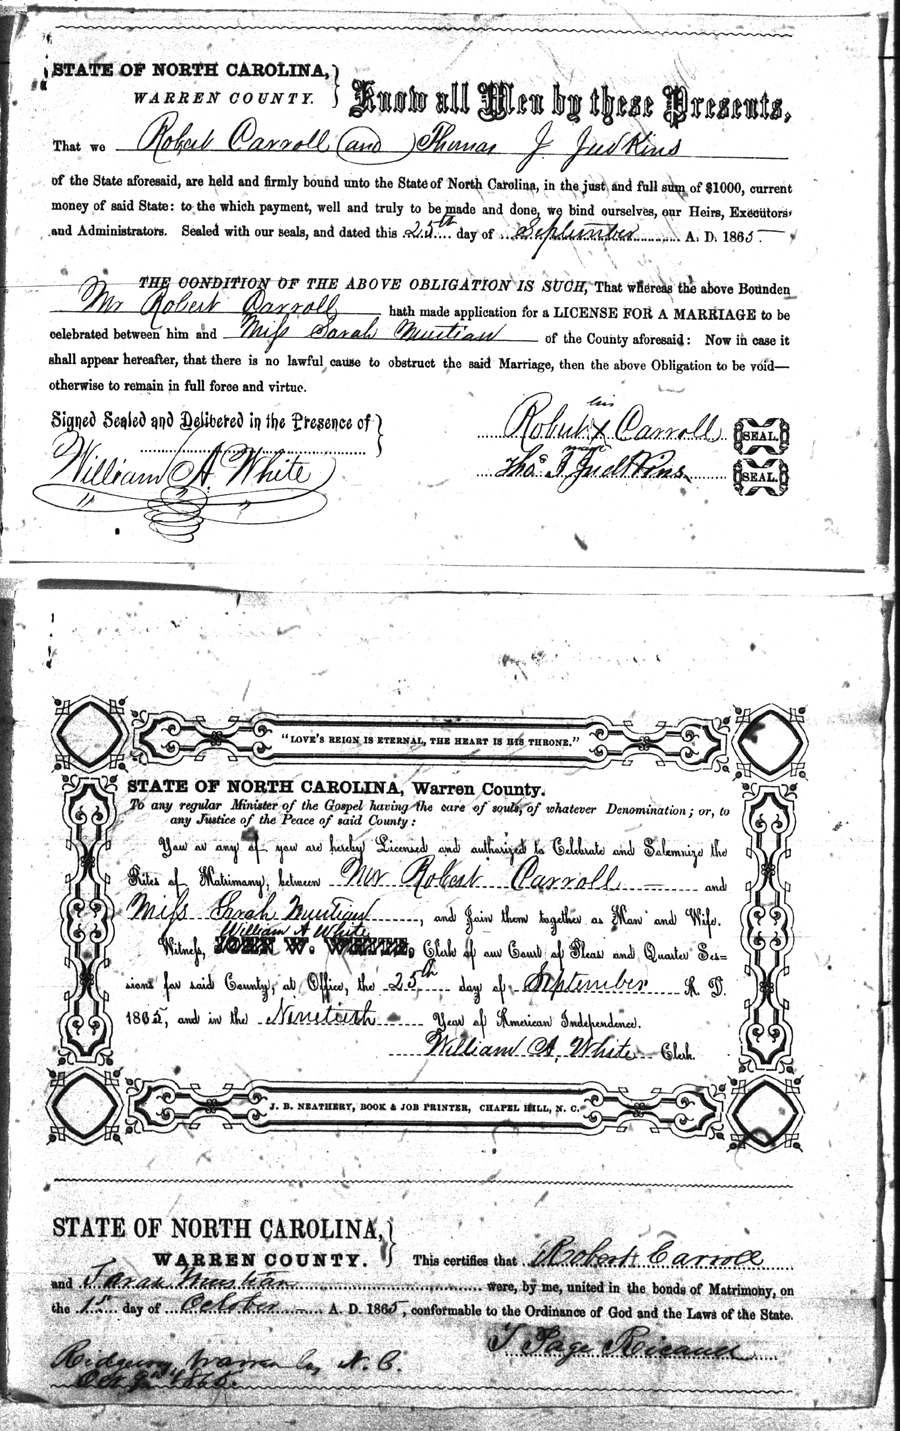 STATE OF NORTH CAROLINA,
WARREN COUNTY.
Know all Men by these Presents,
That we Robert Carroll (and) Thomas J. Judkins
of the State aforesaid, are held and firmly bound unto the State of North Carolina, in the just and full sum of $1000, current
money of said State: to the which payment, well and truly to be made and done, we bind ourselves, our Heirs, Executors,
and Administrators. Sealed with our seals, and dated this 25th day of September A. D. 1865
THE CONDITION OF THE ABOVE OBLIGATION IS SUCH, That whereas the above Bounden
Mr Robert Carroll hath made application for a LICENSE FOR A MARRIAGE to be
celebrated between him and Miss Sarah Mustian of the County aforesaid: Now in case it
shall appear hereafter, that there is no lawful cause to obstruct the said Marriage, then the above Obligation to be void—
otherwise to remain in full force and virtue.
Signed Sealed and Delivered in the Presence of
William A. White
his
Robert x Carroll SEAL.
mark
Thos J Judkins SEAL.
"LOVE'S REIGN IS ETERNAL, THE HEART IS HIS THRONE."
STATE OF NORTH CAROLINA, Warren County.
To any regular Minister of the Gospel having the care of souls, of whatever Denomination; or, to
any Justice of the Peace of said County:
You or any of you are hereby Licensed and authorized to Celebrate and Solemnize the
Rites of Matrimony, between Mr Robert Carroll and
Miss Sarah Mustian, and Join them together as Man and Wife.
William A White
Witness, JOHN W. WHITE, Clerk of our Court of Pleas and Quarter Ses=
sions for said County, at Office, the 25th day of September A. D.
1865, and in the Ninetieth Year of American Independence.
William A, White Clerk.
J. B. NEATHERY, BOOK & JOB PRINTER, CHAPEL HILL, N. C.
STATE OF NORTH CAROLINA,
WARREN COUNTY.
This certifies that Robert Carroll
and Sarah Mustian were, by me, united in the bonds of Matrimony, on
the 1st day of October A. D. 1865, conformable to the Ordinance of God and the Laws of the State.
T Page Ricaud
Ridgeway Warren Co, N. C.
Oct 1865